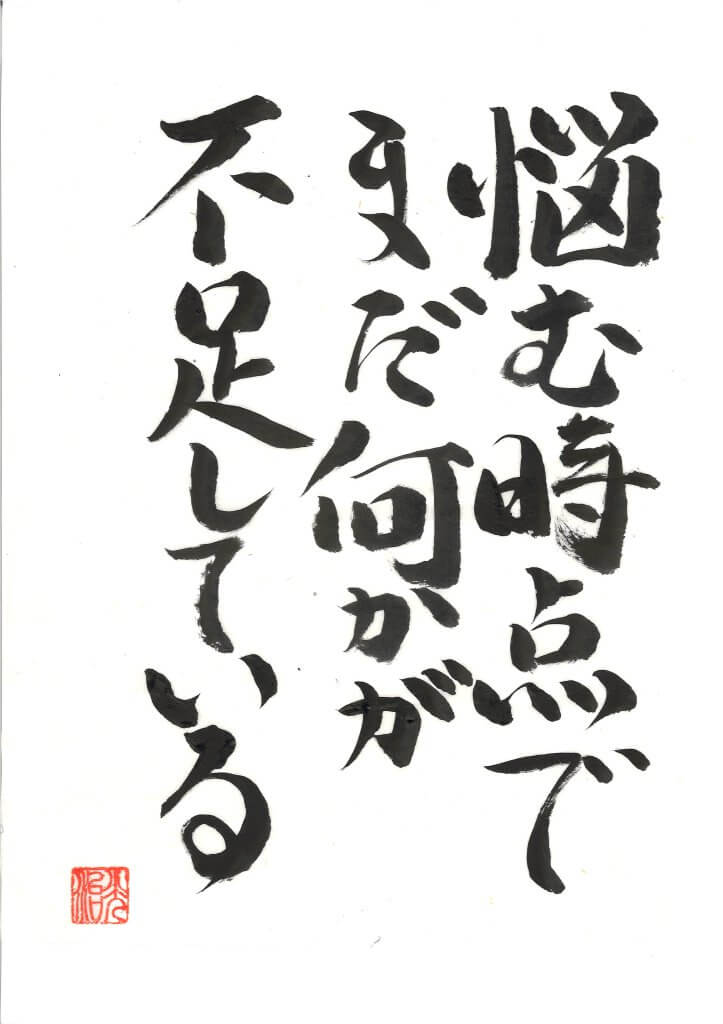 悩む時点で
まだ何かが
不足している